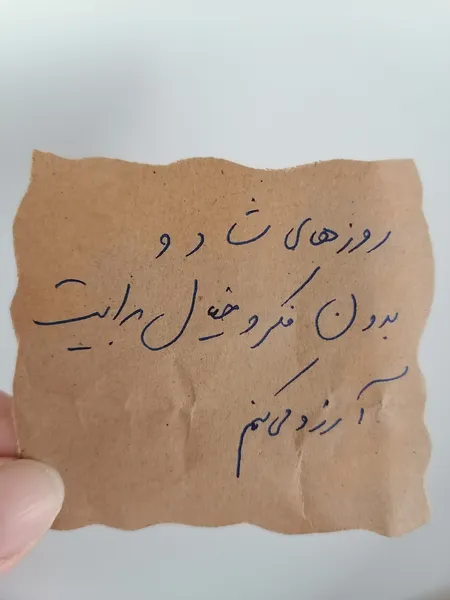 روزهای شاد و
بدون فکر و خیال برایت
آرزو می‌کنم